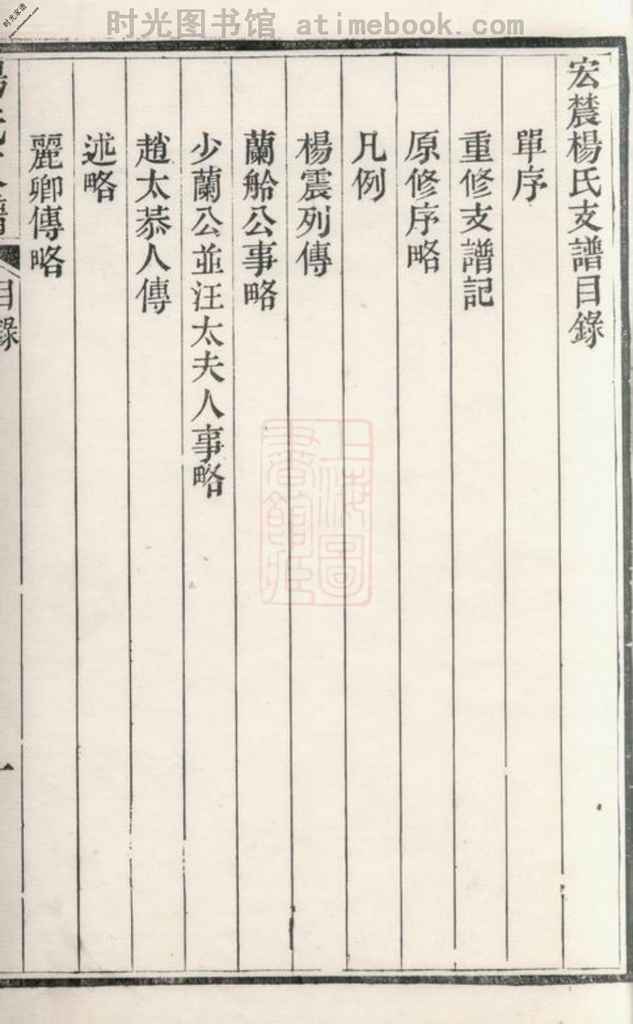 时光图书馆 atimebook.com
宏農楊氏支譜目錄
單序
重修支譜記
原修序略
凡例
楊震列傳
蘭船公事略
少蘭公並汪太夫人事略
趙太恭人傳
述略
麗卿傳略
目錄
一